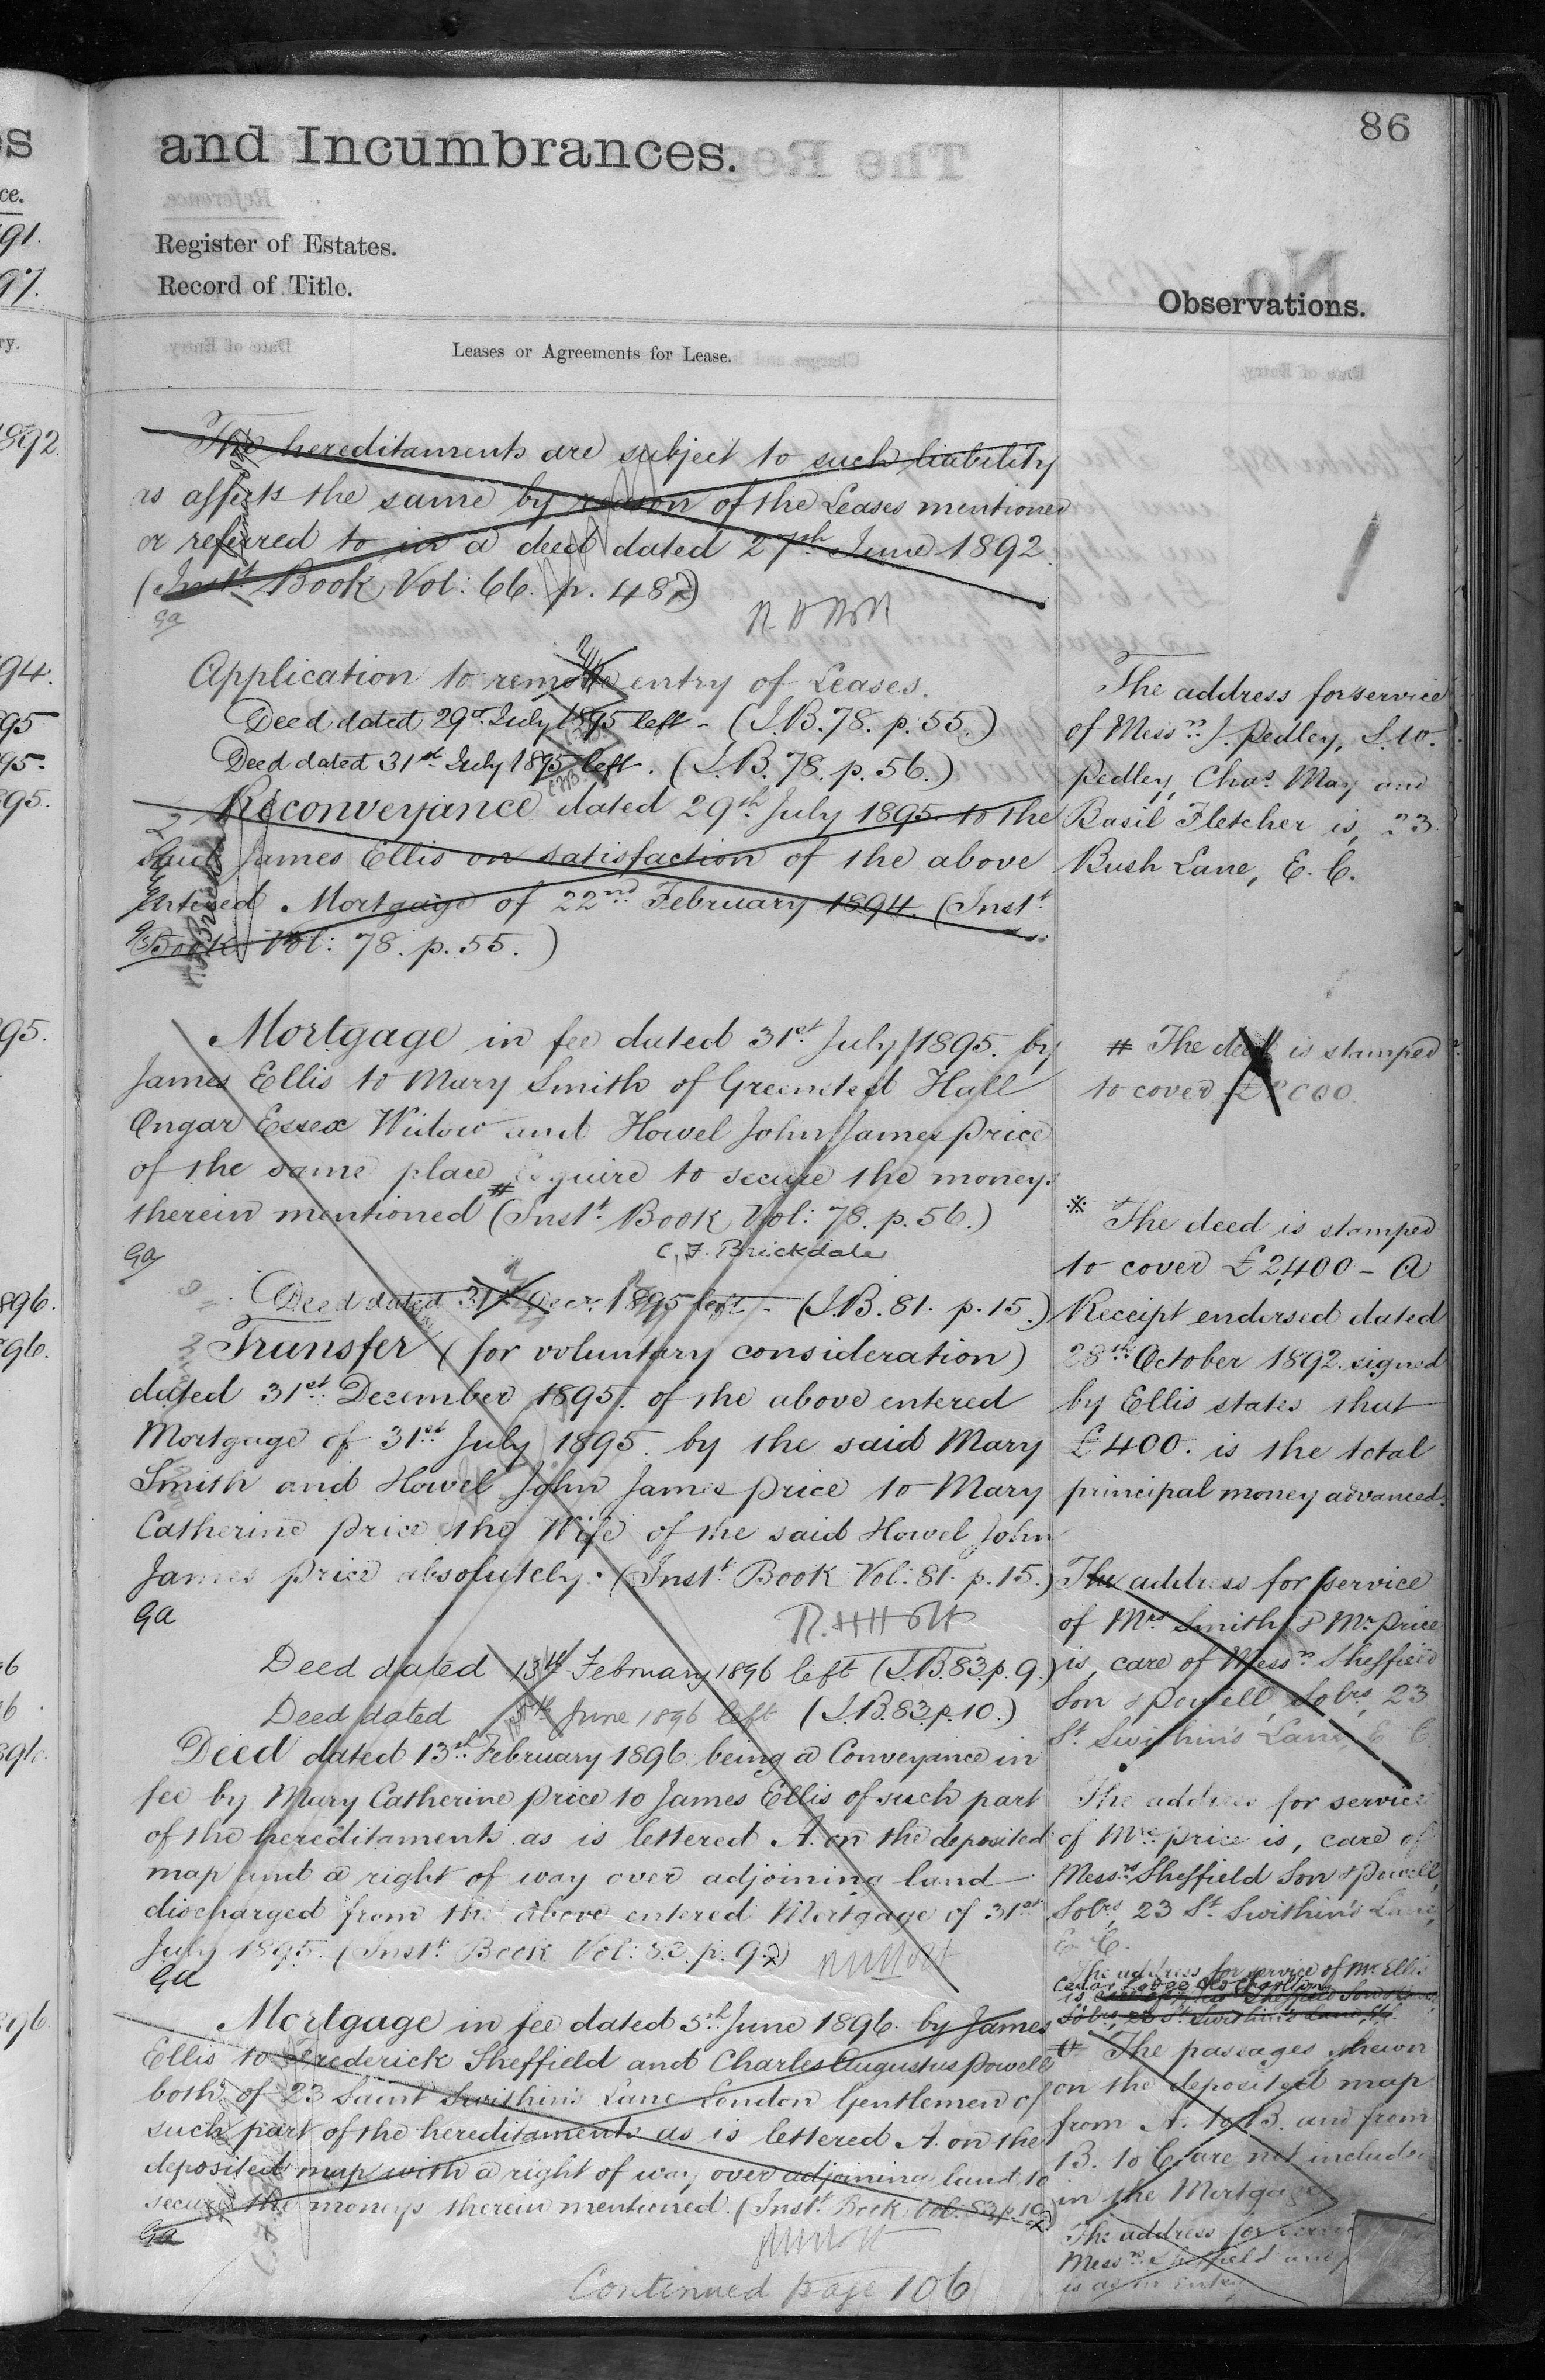 86
and Incumbrances.
Register of Estates.
Record of Title.
Observations.
Leases or Agreements for Lease.
The hereditaments are subject to such liability
as affects the same by reason of the Leases mentioned
or referred to in a deed dated 27th June 1892.
(Instt Book Vol: 66. p. 48)
Application to remove entry of Leases.
Deed dated 29th July 1895 left - (I.B. 78. p. 55.)
Deed dated 31st July 1895 left. (I.B. 78. p. 56.)
Reconveyance dated 29th July 1895 to the
said James Ellis on satisfaction of the above
Entered Mortgage of 22nd February 1894. (Instt
Book Vol: 78. p. 55.)
Mortgage in fee dated 31st July 1895. by
James Ellis to Mary Smith of Greensted Hall
Ongar Essex Widow and Howel John James Price
of the same place Esquire to secure the moneys
therein mentioned # (Instt Book Vol: 78. p. 56.)
Ga
C. F. Brickdale
Deed dated 31st Decr. 1895 left - (I.B. 81. p. 15.)
Transfer (for voluntary consideration)
dated 31st December 1895. of the above entered
Mortgage of 31st July 1895. by the said Mary
Smith and Howel John James Price to Mary
Catherine Price the Wife of the said Howel John
James Price absolutely. (Instt Book Vol: 81. p. 15.)
Ga
Deed dated 13th February 1896 left (I.B. 83. p. 9.)
Deed dated 5th June 1896 left (I.B. 83. p. 10.)
Deed dated 13th February 1896 being a Conveyance in
fee by Mary Catherine Price to James Ellis of such part
of the hereditaments as is lettered A. on the deposited
map and a right of way over adjoining land
discharged from the above entered Mortgage of 31st
July 1895. (Instt Book Vol: 83. p. 9.)
Ga
Mortgage in fee dated 5th June 1896. by James
Ellis to Frederick Sheffield and Charles Augustus Powell
both of 23 Saint Swithin's Lane London Gentlemen of
such part of the hereditaments as is lettered A. on the
deposited map with a right of way over adjoining land to
secure the moneys therein mentioned. (Instt Book Vol. 83 p. 10)
Ga
Continued page 106
The address for service
of Messrs J. Pedley, S. W.
Pedley, Chas May and
Basil Fletcher is, 23
Bush Lane, E. C.
# The deed is stamped
to cover £ 000.
※ The deed is stamped
to cover £2,400 - A
Receipt endorsed dated
28th October 1892 signed
by Ellis states that
£400. is the total
principal money advanced.
The address for service
of Mrs Smith & Mr Price
is, care of Messrs Sheffield
Son & Powell, Solrs, 23
St Swithin's Lane, E C.
The address for service
of Mrs Price is, care of
Messrs Sheffield Son & Powell,
Solrs, 23 St Swithin's Lane,
E. C.
The address for service of Mr Ellis
Cedar Lodge Old Charlton
is care of Messrs Sheffield Son &
Solrs, 23 St Swithin's Lane, E.C.
The passages shewn
on the deposited map
from A. to B. and from
B. to C. are not included
in the Mortgage
The address for service
Messrs Sheffield and
is as in entry